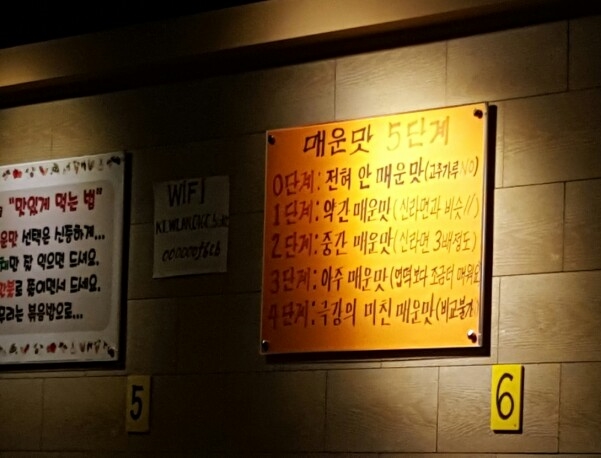 "맛있게 먹는 법"
선택은 신중하게...
맛 잘 먹으면 드셔요.
로 줄이면서 드세요.
볶음밥으로...
WIFI
5
매운맛 5단계
0단계: 전혀 안 매운맛(고추가루 NO)
1단계: 약간 매운맛(신라면과 비슷//)
2단계: 중간 매운맛(신라면 3배정도)
3단계: 아주 매운맛(엽떡보다 조금더 매워요
4단계: 극강의 미친 매운맛(비교불가)
6